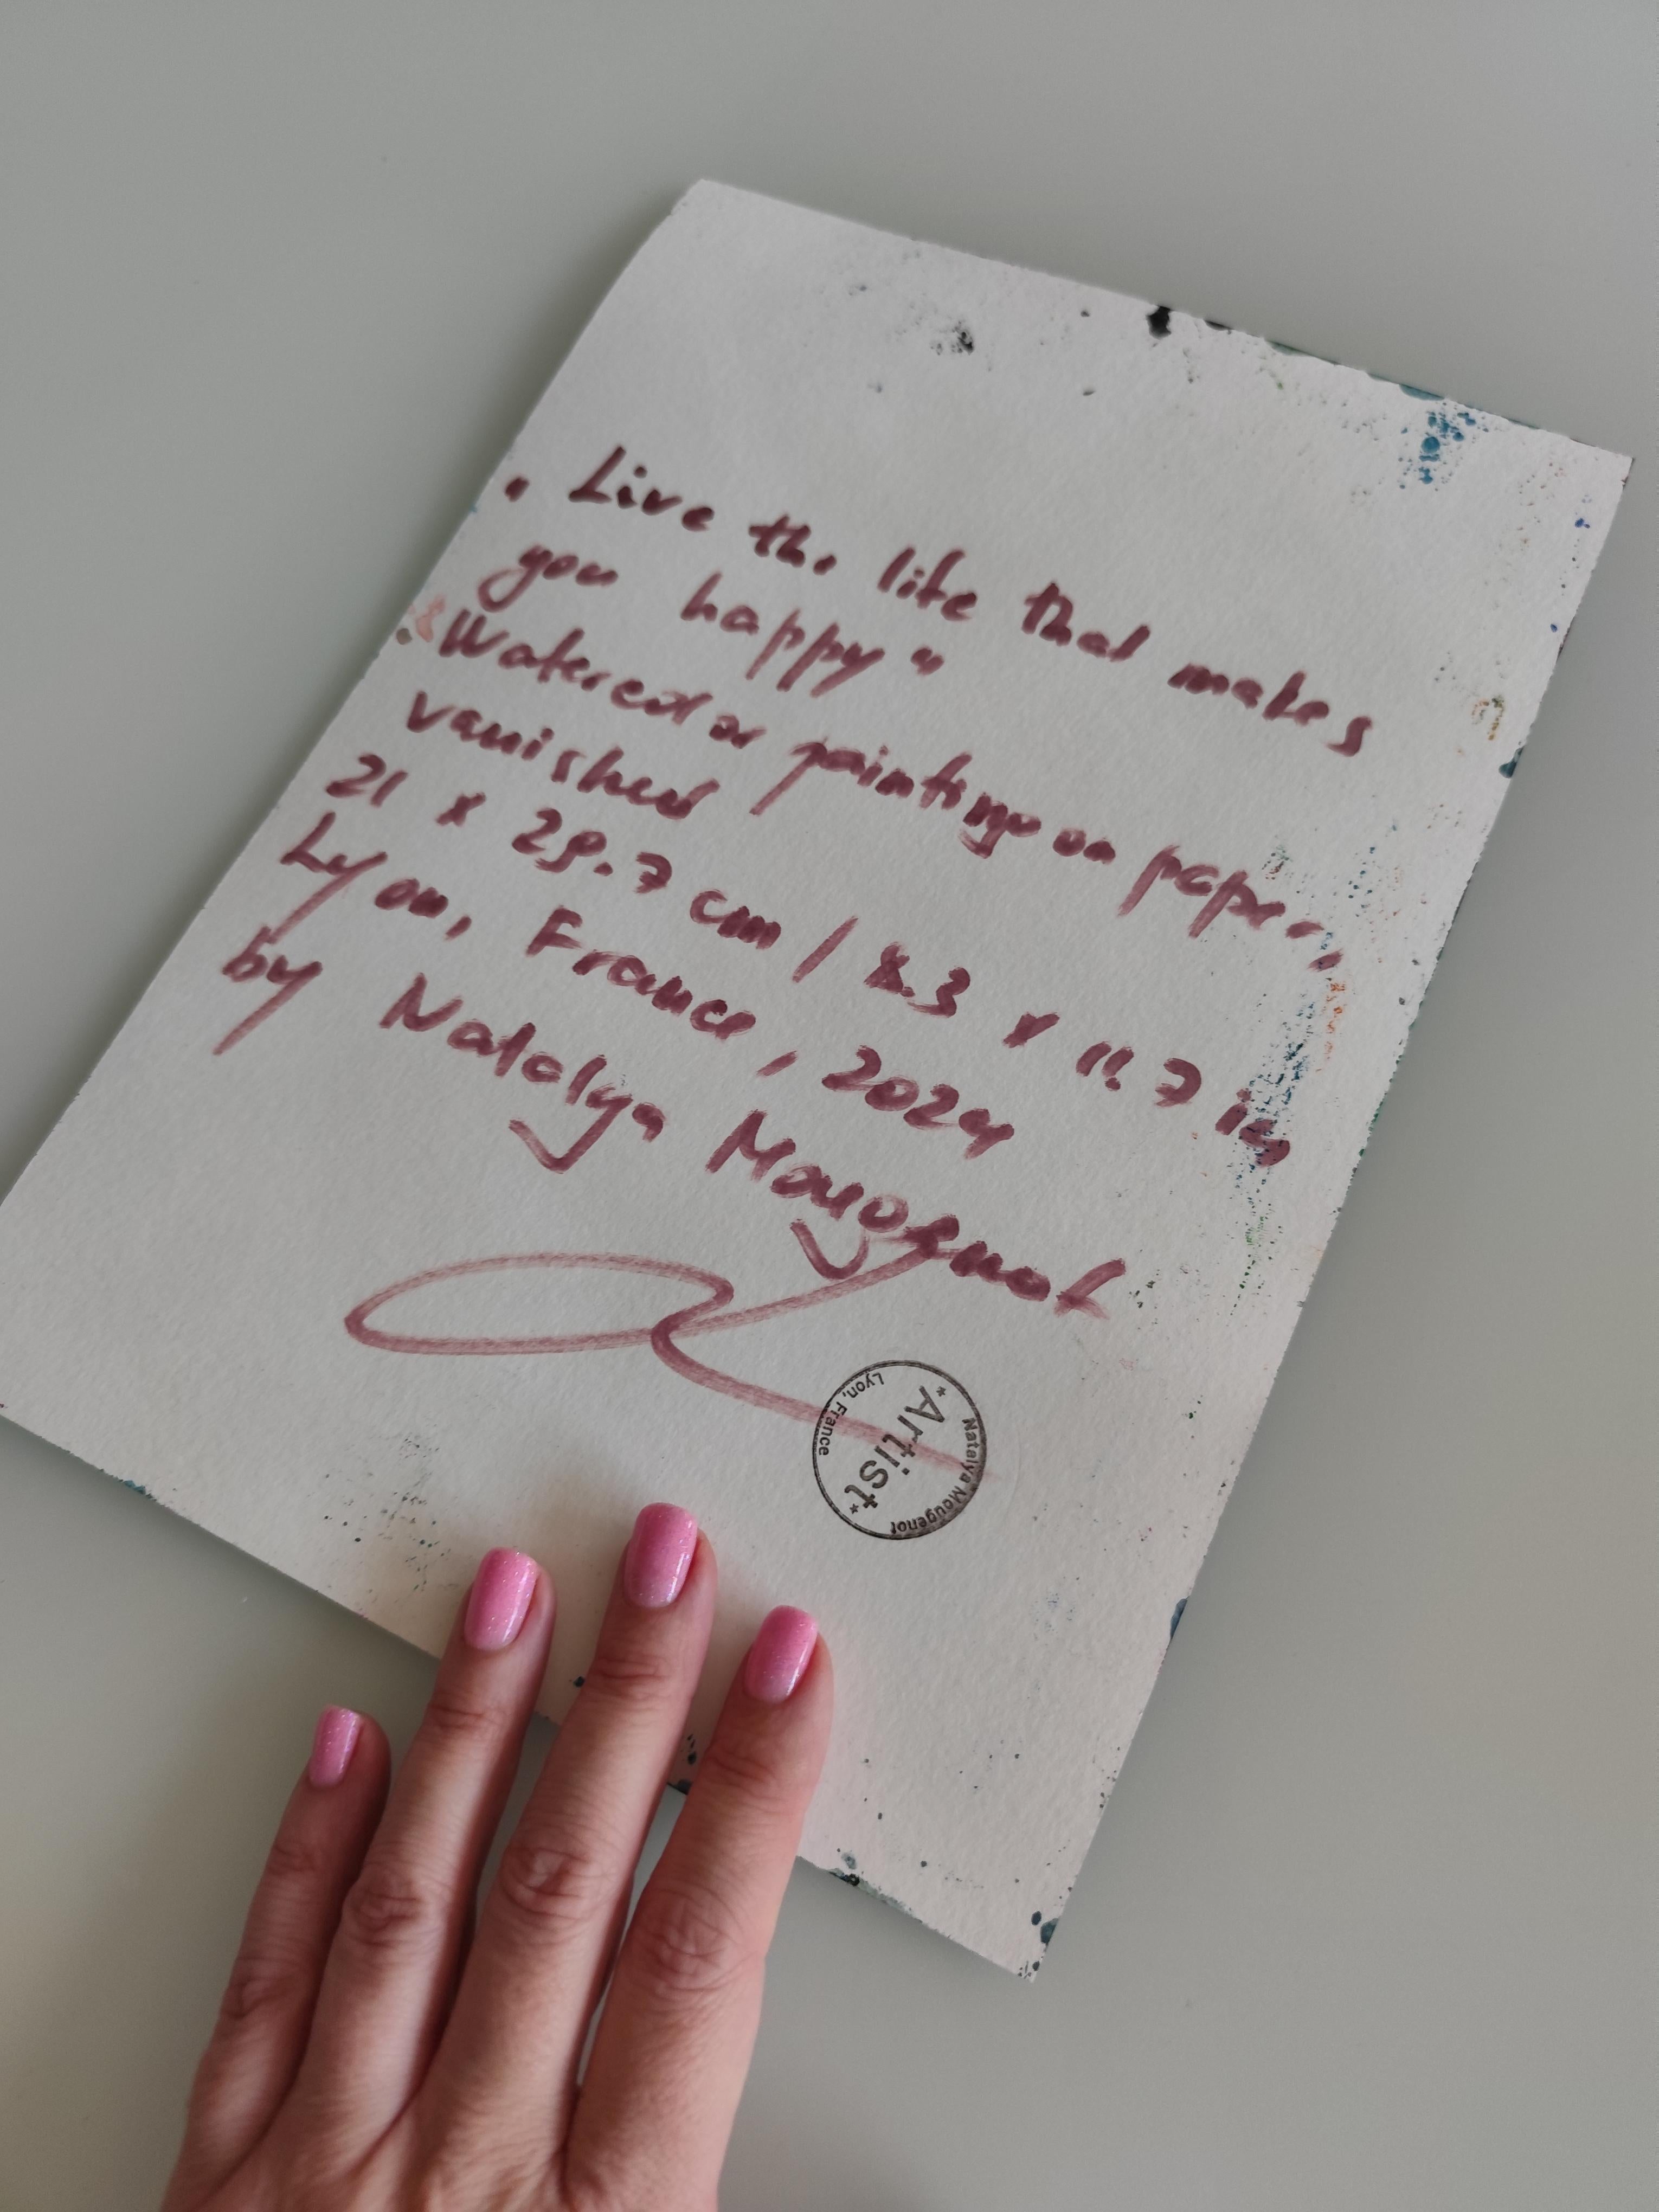 " Live the life that makes
you happy "
Watercolor painting on paper,
vanished
21 x 29.7 cm / 8.3 x 11.7 in,
Lyon, France, 2024
by Natalya Mougenot
Natalya Mougenot
*Artist*
Lyon, France